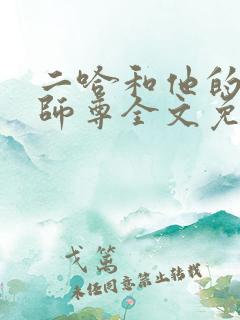 二哈和他的
師尊全文免
戈篤
未经同意禁止转载